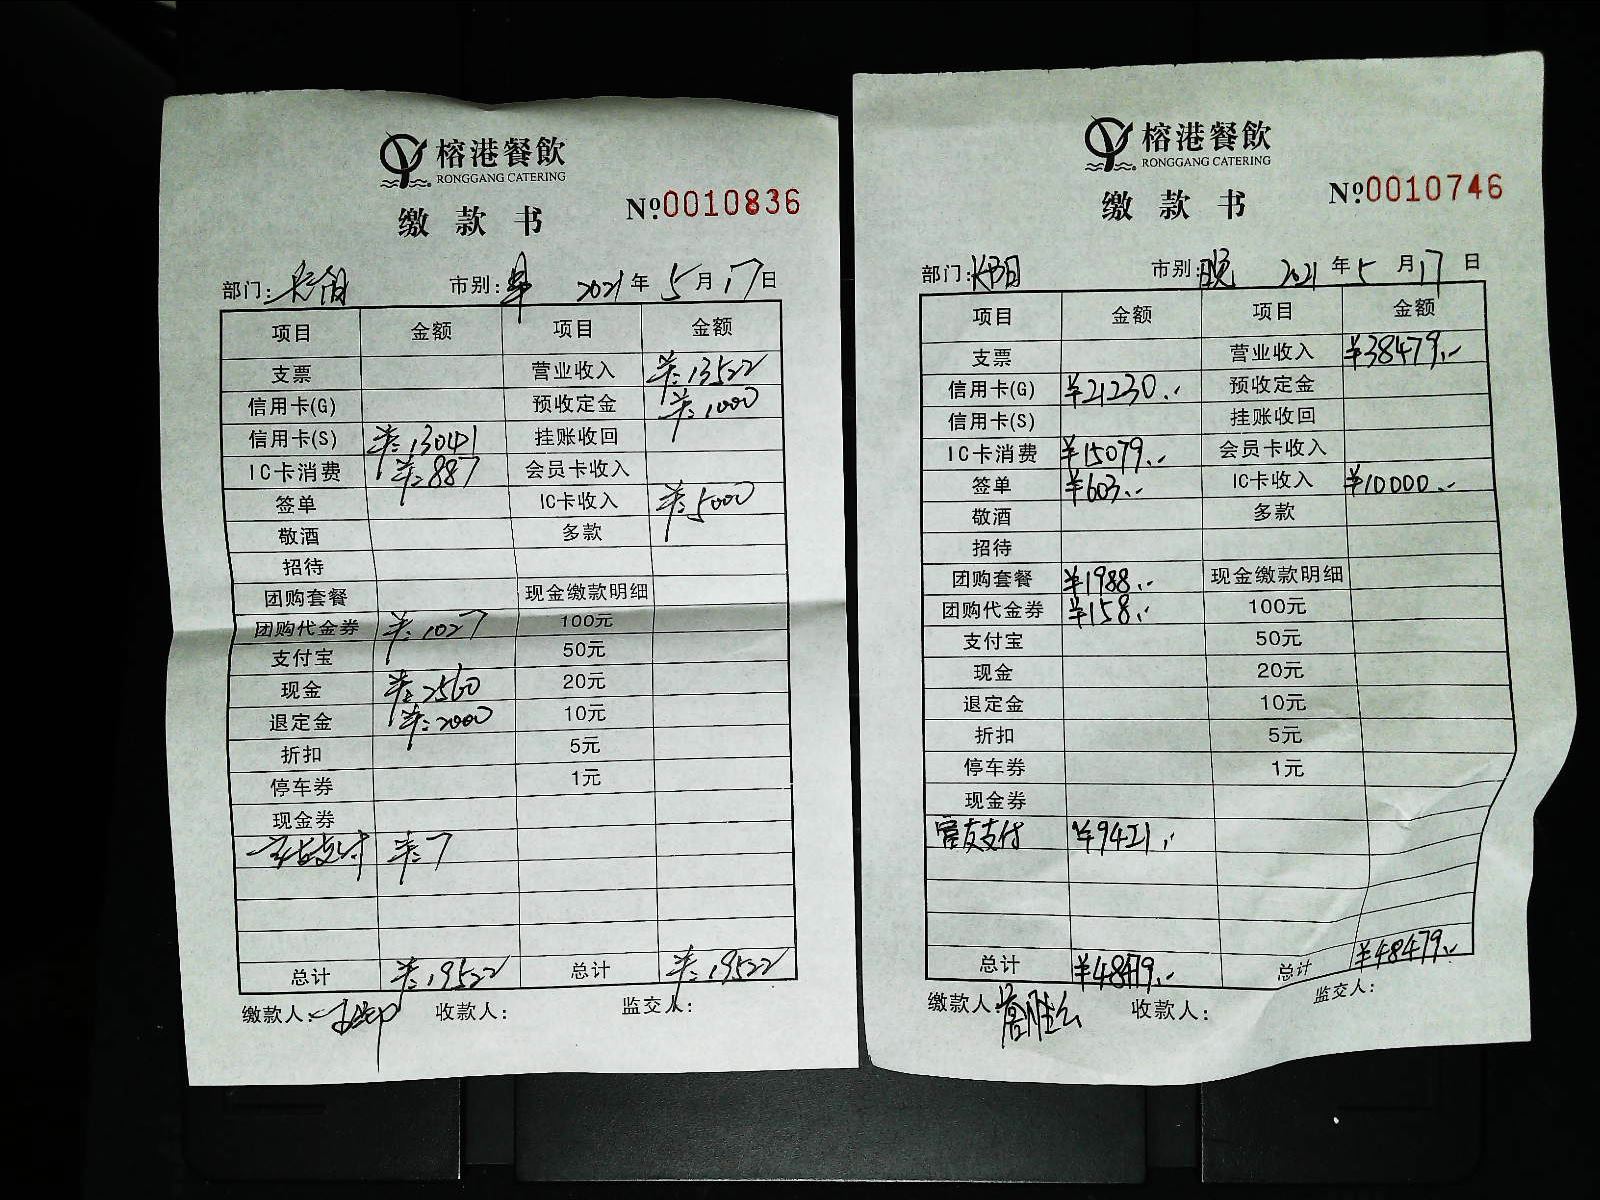 榕港餐飲
RONGGANG CATERING
缴款书
№0010836
部门: 市别: 早 2021年5月17日
项目 金额 项目 金额
支票 营业收入 ¥:13522
信用卡(G) 预收定金 ¥:1000
信用卡(S) ¥:13041 挂账收回
IC卡消费 ¥:887 会员卡收入
签单 IC卡收入 ¥:5000
敬酒 多款
招待
团购套餐 现金缴款明细
团购代金券 ¥:1027 100元
支付宝 50元
现金 ¥:2560 20元
退定金 ¥:2000 10元
折扣 5元
停车券 1元
现金券
支付 ¥:7
总计 ¥:19522 总计 ¥:19522
缴款人: 收款人: 监交人:
榕港餐飲
RONGGANG CATERING
缴款书
№0010746
部门: 市别: 晚 2021年5月17日
项目 金额 项目 金额
支票 营业收入 ¥38479.-
信用卡(G) ¥21230.- 预收定金
信用卡(S) 挂账收回
IC卡消费 ¥15079.- 会员卡收入
签单 ¥603.- IC卡收入 ¥10000.-
敬酒 多款
招待
团购套餐 ¥1988.- 现金缴款明细
团购代金券 ¥158.- 100元
支付宝 50元
现金 20元
退定金 10元
折扣 5元
停车券 1元
现金券
客友支付 ¥9421.-
总计 ¥48479.- 总计 ¥48479.-
缴款人: 收款人: 监交人: